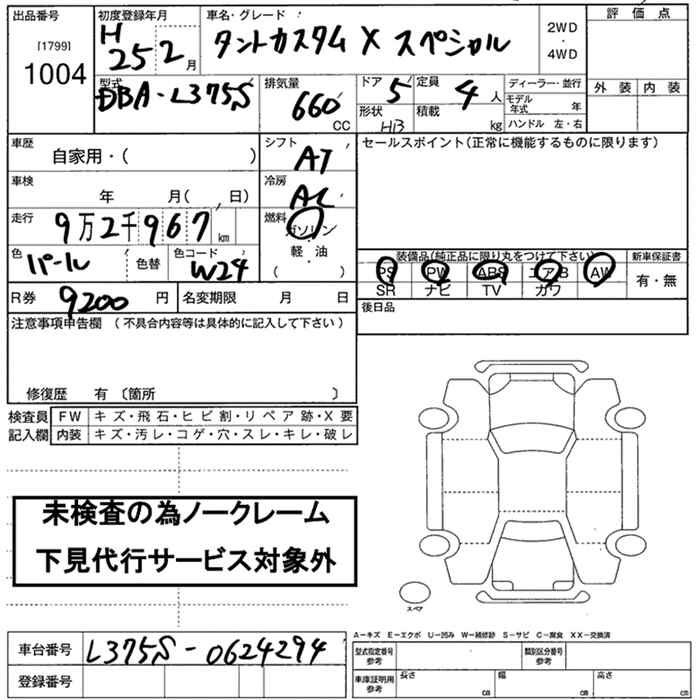 出品番号
[1799]
1004
初度登録年月
H 25 2月
車名・グレード
タントカスタム X スペシャル
2WD
・
4WD
評価点
外装 内装
型式
DBA-L375S
排気量
660 CC
ドア 5
形状 HB
定員 4人
積載 kg
ディーラー・並行
モデル年式 年
ハンドル 左・右
車歴
自家用・( )
シフト AT
セールスポイント(正常に機能するものに限ります)
車検 年 月( 、日)
冷房 AC
走行 9万2千967km
燃料
ガソリン
・
軽・油
( )
色 パール
色替
色コード W24
装備品(純正品に限り丸をつけて下さい)
PS PW ABS エアB AW
SR ナビ TV カワ
新車保証書
有・無
R券 9200円
名変期限 月 日
後日品
注意事項申告欄 (不具合内容等は具体的に記入して下さい)
修復歴 有 〔箇所 〕
検査員
記入欄
FW キズ・飛石・ヒビ割・リペア跡・X要
内装 キズ・汚レ・コゲ・穴・スレ・キレ・破レ
未検査の為ノークレーム
下見代行サービス対象外
スペア
A−キズ E−エクボ U−凹み W−補修跡 S−サビ C−腐食 XX−交換済
車台番号 L375S-0624294
登録番号
型式指定番号
参考
類別区分番号
参考
車庫証明用
参考
長さ cm
幅 cm
高さ cm